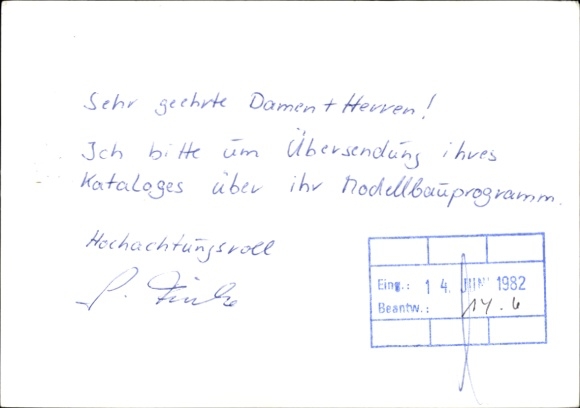 Sehr geehrte Damen + Herren!
Ich bitte um Übersendung ihres
Kataloges über ihr Modellbauprogramm.
Hochachtungsvoll
Eing.: 14. JUNI 1982
Beantw.: 14.6